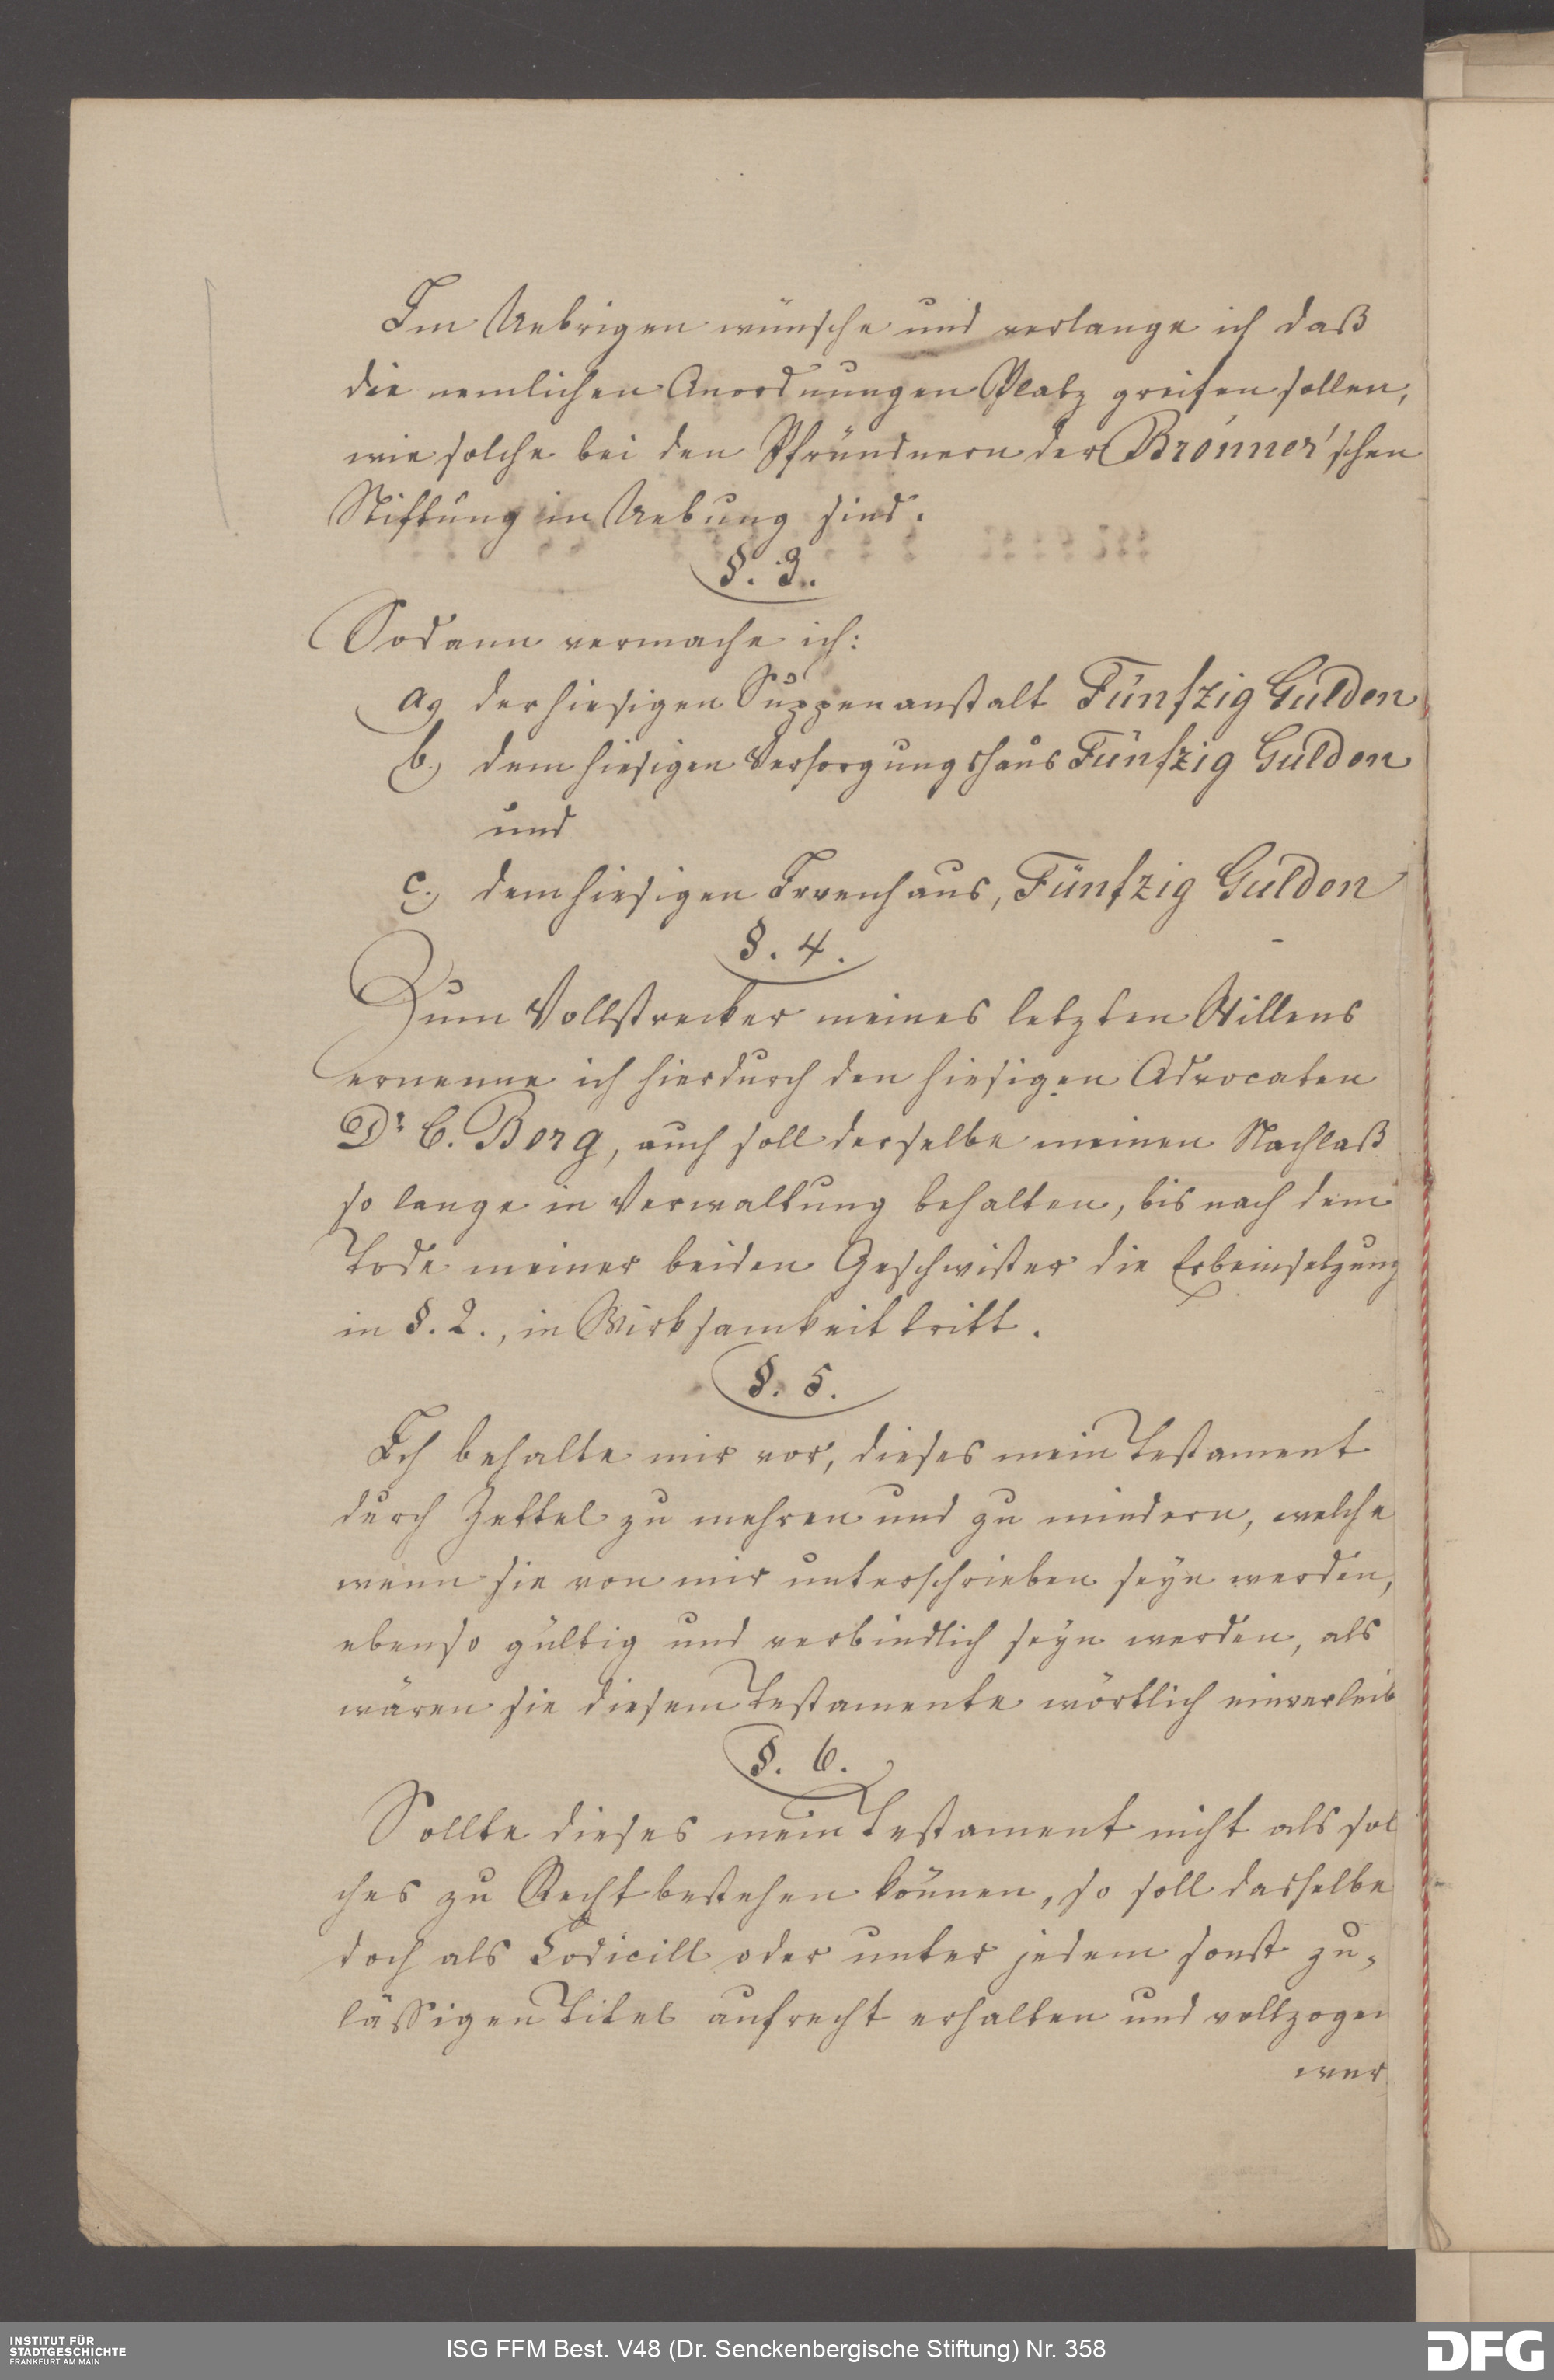 Im Uebrigen wünsche und verlange ich daß
die nemlichen Anordnungen Platz greifen sollen,
wie solche bei den Pfründnern der Brönner'schen
Stiftung in Uebung sind.
§. 3.
Sodann vermache ich:
a, der hiesigen Suppenanstalt Fünfzig Gulden
b., dem hiesigen Versorgungshaus Fünfzig Gulden
und
c., dem hiesigen Irrenhaus, Fünfzig Gulden
§. 4.
Zum Vollstrecker meines letzten Willens
ernenne ich hierdurch den hiesigen Advocaten
Dr C. Berg, auch soll derselbe meinen Nachlaß
so lange in Verwaltung behalten, bis nach dem
Tode meiner beiden Geschwister die Erbeinsetzung
in §. 2., in Wirksamkeit tritt.
§. 5.
Ich behalte mir vor, dieses mein Testament
durch Zettel zu mehren und zu mindern, welche
wenn sie von mir unterschrieben seyn werden,
ebenso gültig und verbindlich seyn werden, als
wären sie diesem Testamente wörtlich einverleib
§. 6.
Sollte dieses mein Testament nicht als sol
ches zu Recht bestehen können, so soll dasselbe
doch als Codicill oder unter jedem sonst zu-
lässigen Titel aufrecht erhalten und vollzogen
wer
INSTITUT FÜR
STADTGESCHICHTE
FRANKFURT AM MAIN
ISG FFM Best. V48 (Dr. Senckenbergische Stiftung) Nr. 358
DFG